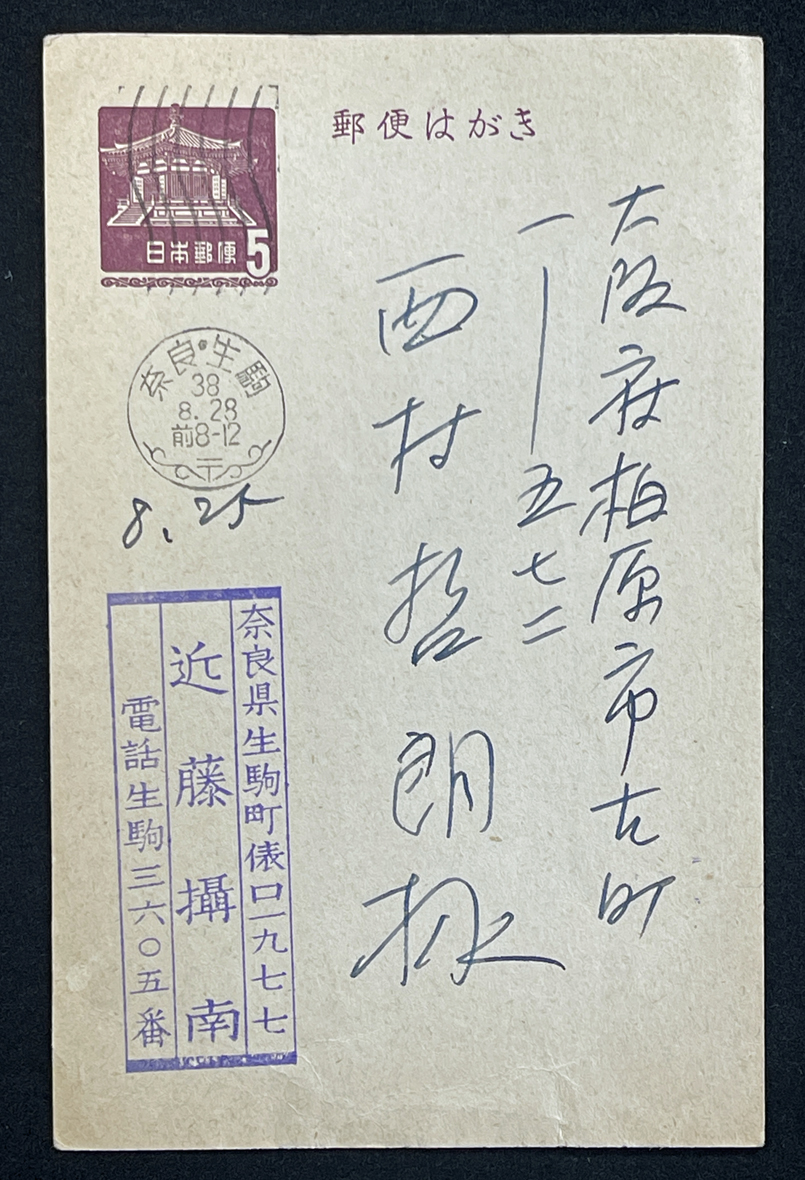 郵便はがき
日本郵便 5
奈良・生駒
38
8.28
前8-12
8.25
大阪府柏原市古町
一ー五七二
西村哲朗様
奈良県生駒町俵口一九七七
近藤攝南
電話生駒三六〇五番